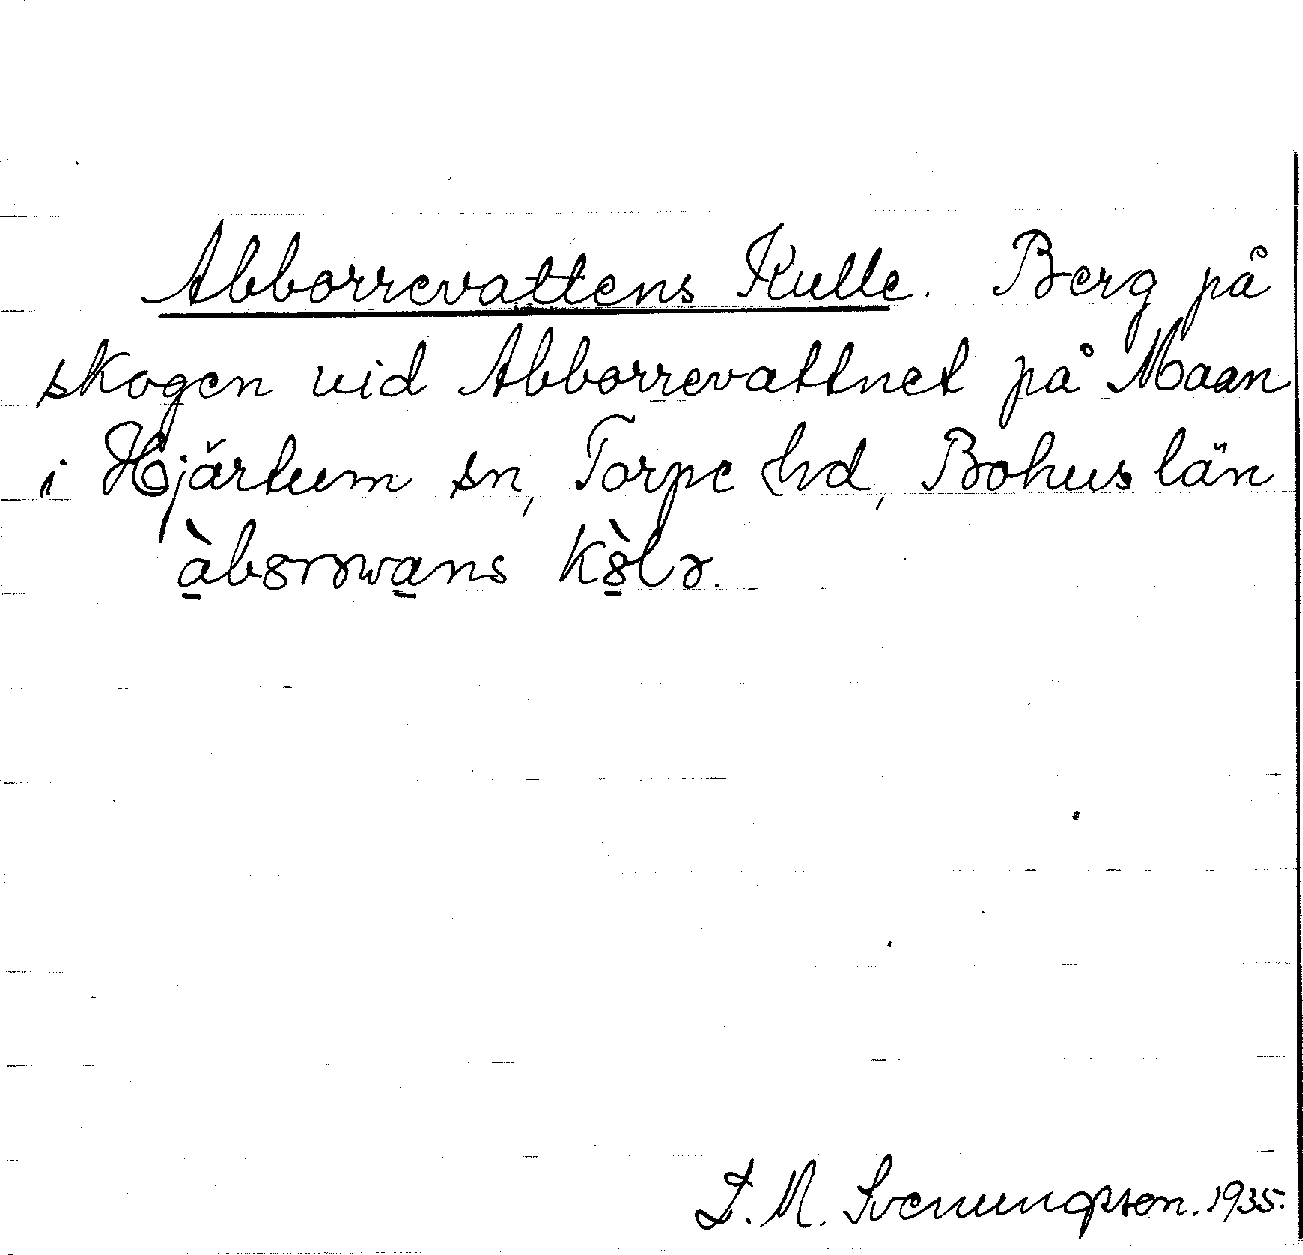 Abborrevattens Kulle. Berg på
skogen vid Abborrevattnet på Maan
i Hjärtum sn, Torpe hd, Bohus län
àbɞrəwans kɞ̀lə.
D. M. Svenungsson. 1935.